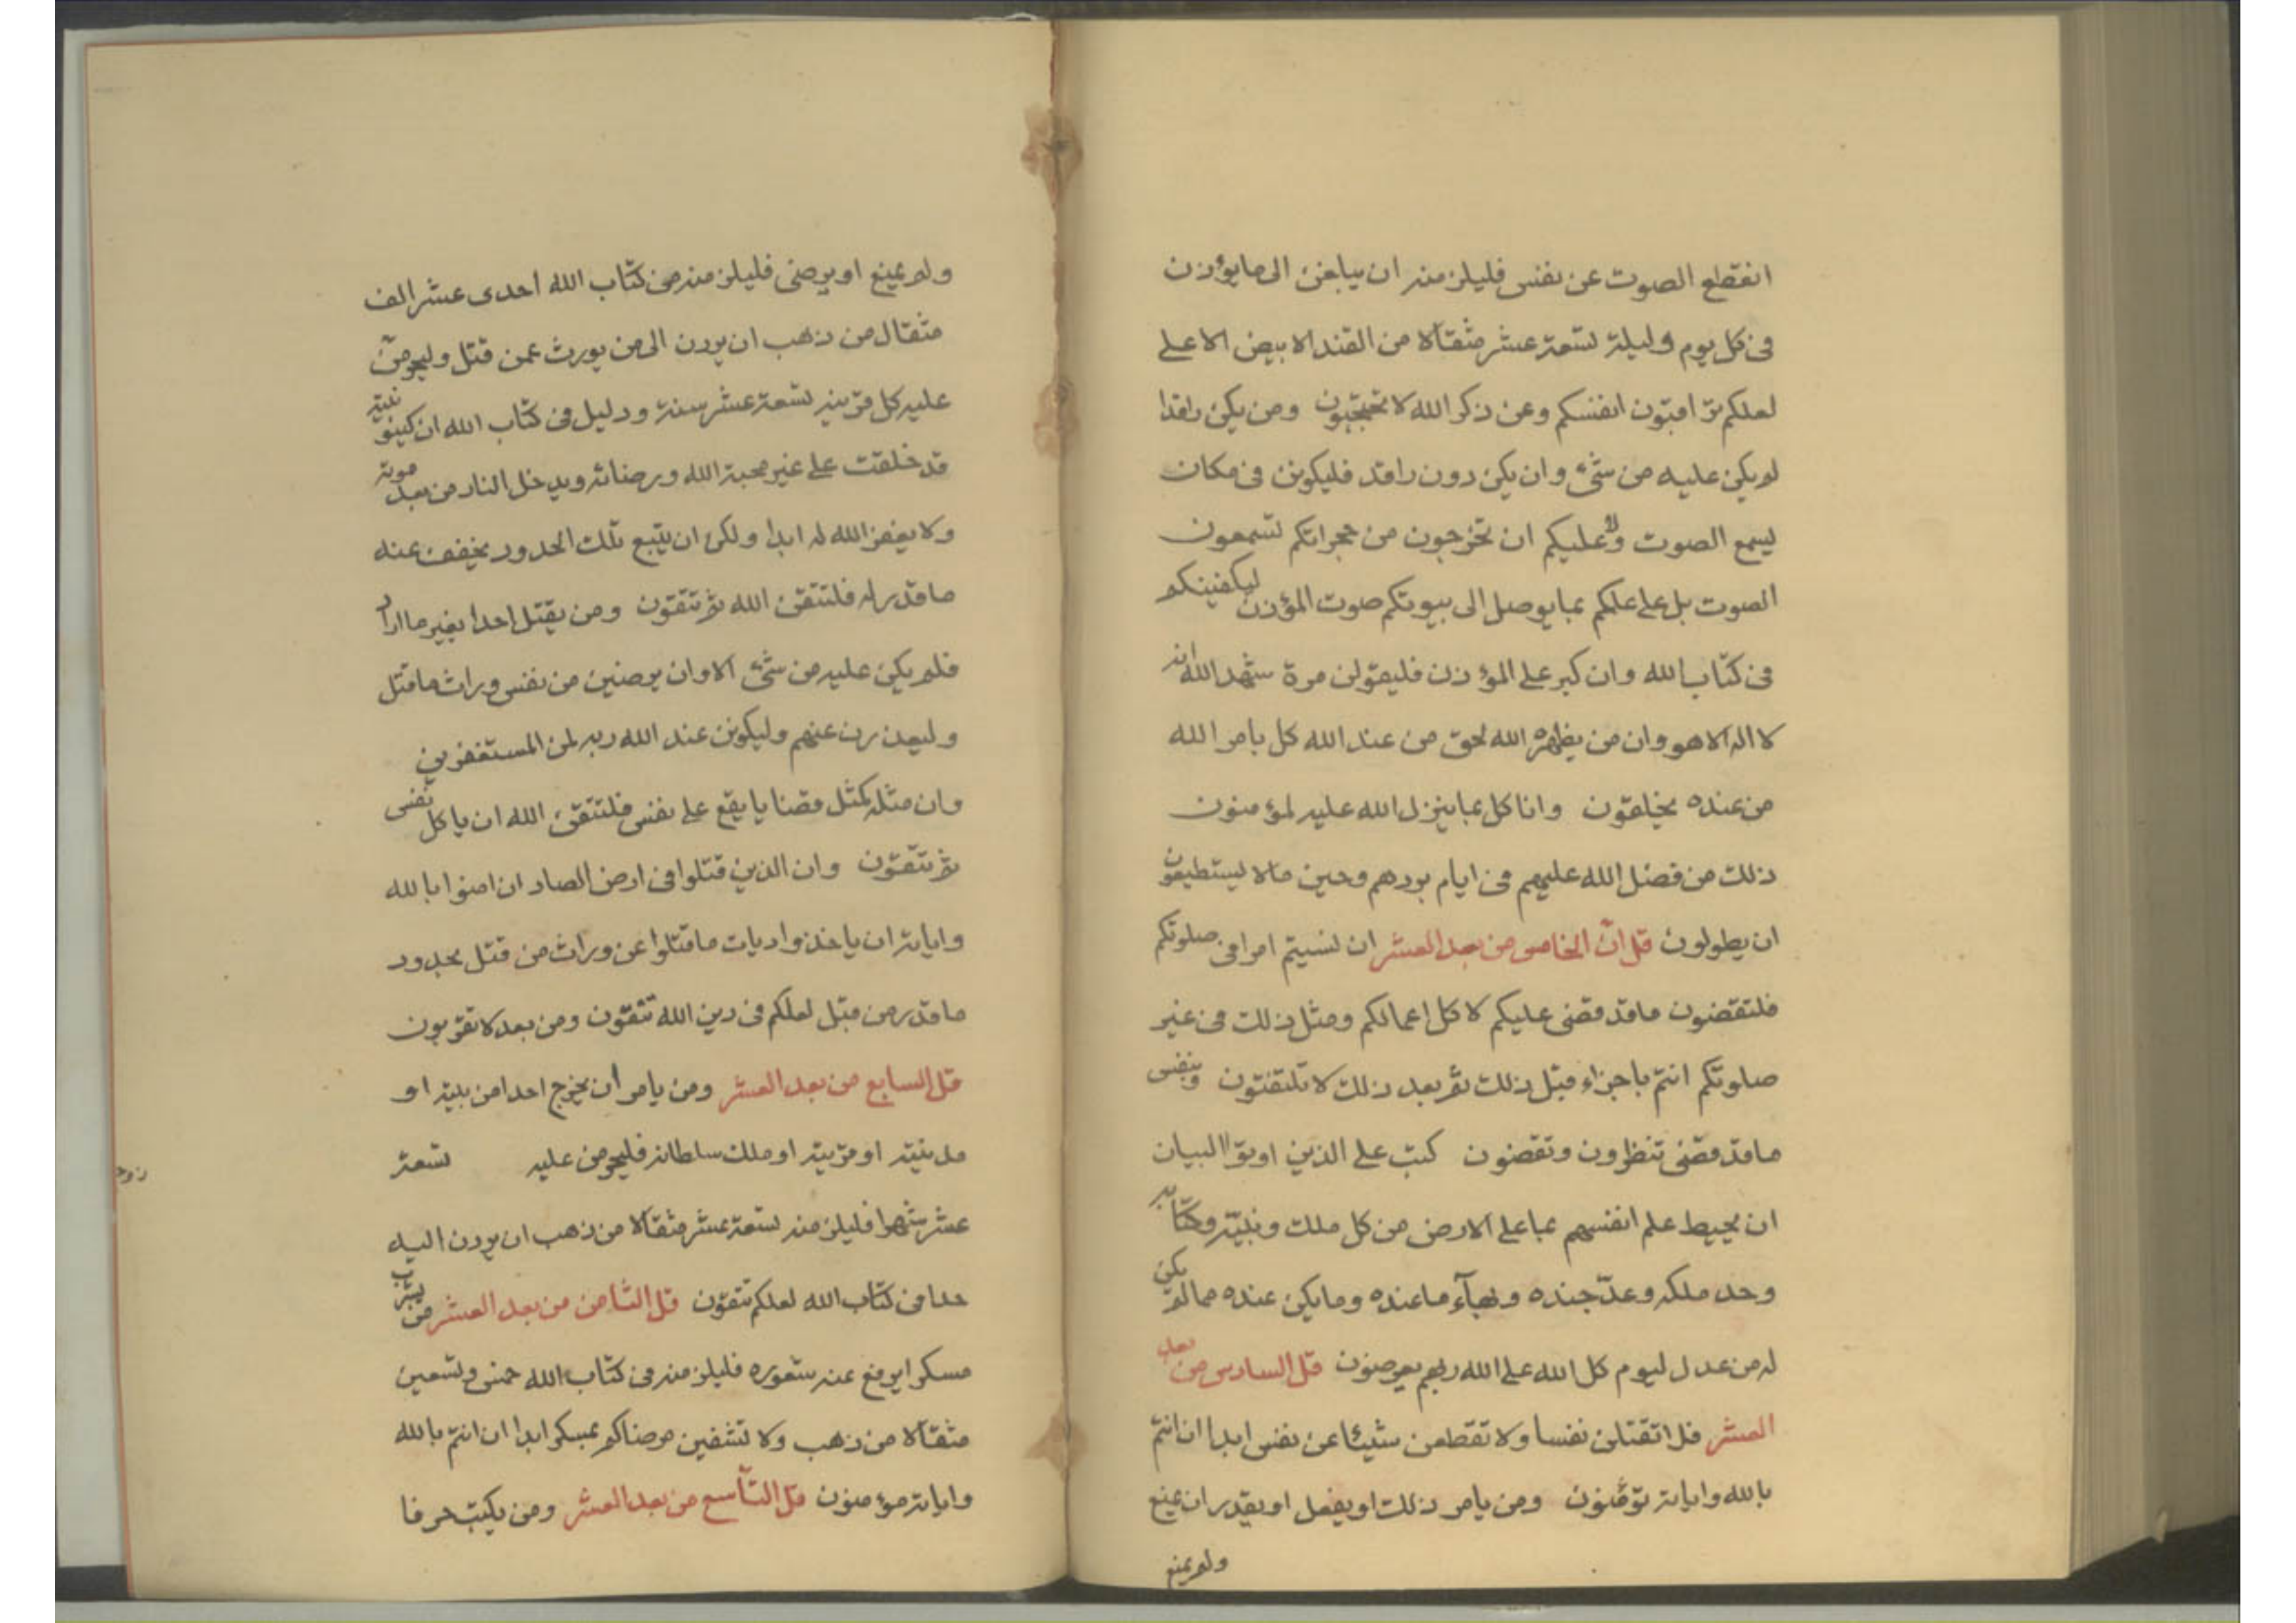 انقطع الصوت عن نفس فليلزمنه ان يبلغن الى ما يوذن
فى كل يوم وليلة تسعة عشر مثقالا من القند الابيض الاعلى
لعلكم تراقبون انفسكم وعن ذكر الله لا تحتجبون ومن يكن راقدا
لم يكن عليه من شئ وان يكن دون راقد فليكونن فى مكان
يسمع الصوت ولا عليكم ان تخرجون من حجراتكم لتسمعون
الصوت بل على علمكم بما يوصل الى بيوتكم صوت المؤذن ليكفينكم
فى كتاب الله وان كبر على المؤذن فليقولن مرة شهد الله انه
لا اله الا هو وان من يظهره الله لحق من عند الله كل بامر الله
من عنده يخلقون وانا كل بما ينزل الله عليه لمؤمنون
ذلك من فضل الله عليهم فى ايام بردهم وحين ما لا يستطيعون
ان يطولون قل ان الخامس من بعد العشر ان نسيتم امرا فى صلوتكم
فلتقضون ما قد قضى عليكم لا كل اعمالكم ومثل ذلك فى غير
صلوتكم انتم باجزاء قبل ذلك ثم بعد ذلك لا تلتفتون وبنفس
ما قد قضى تنظرون وتقضون كتب على الذين اوتوا البيان
ان يحيط علم انفسهم بما على الارض من كل ملك ونبيه وكتابه
وحد ملكه وعد جنده وبهاء ما عنده وما يكن عنده مما لم يكن
له من عدل ليوم كل الله على الله ربهم يعرضون قل السادس من بعد
العشر فلا تقتلن نفسا ولا تقطعن شيئا عن نفس ابدا ان انتم
بالله واياته تؤمنون ومن يامر ذلك او يفعل او يقدر ان يمنع
ولم يمنع
ولم يمنع او يرضى فليلزمنه من كتاب الله احدى عشر الف
مثقال من ذهب ان يردن الى من يورث عمن قتل وليحرمن
عليه كل قرينه تسعة عشر سنة ودليل فى كتاب الله ان كينونيته
قد خلقت على غير محبة الله ورضائه ويدخل النار من بعد موته
ولا يغفر الله له ابدا ولكن ان يتبع تلك الحدود يخفف عنه
ما قدر له فلتتقن الله ثم تتقون ومن يقتل احدا بغير ما اراد
فلم يكن عليه من شئ الا وان يرضين من نفس وراث ما قتل
وليعذرن عنهم وليكونن عند الله ربه لمن المستغفرين
وان مثله كمثل قضايا يقع على نفس فلتتقن الله ان يا كل نفس
ثم تتقون وان الذين قتلوا فى ارض الصاد ان امنوا بالله
واياته ان ياخذوا ديات ما قتلوا عن وراث من قتل بحدود
ما قدر من قبل لعلكم فى دين الله تتقون ومن بعد لا تقربون
قل السابع من بعد العشر ومن يامر ان يخرج احدا من بيته او
مدينته او قريته او ملك سلطانه فليحرمن عليه تسعة
عشر شهرا فليلزمنه تسعة عشر مثقالا من ذهب ان يردن اليه
حدا فى كتاب الله لعلكم تتقون قل الثامن من بعد العشر من يشرب
مسكرا يرفع عنه شعوره فليلزمنه فى كتاب الله خمس وتسعين
مثقالا من ذهب ولا تشفين مرضاكم بمسكر ابدا ان انتم بالله
واياته مؤمنون قل التاسع من بعد العشر ومن يكتب حرفا